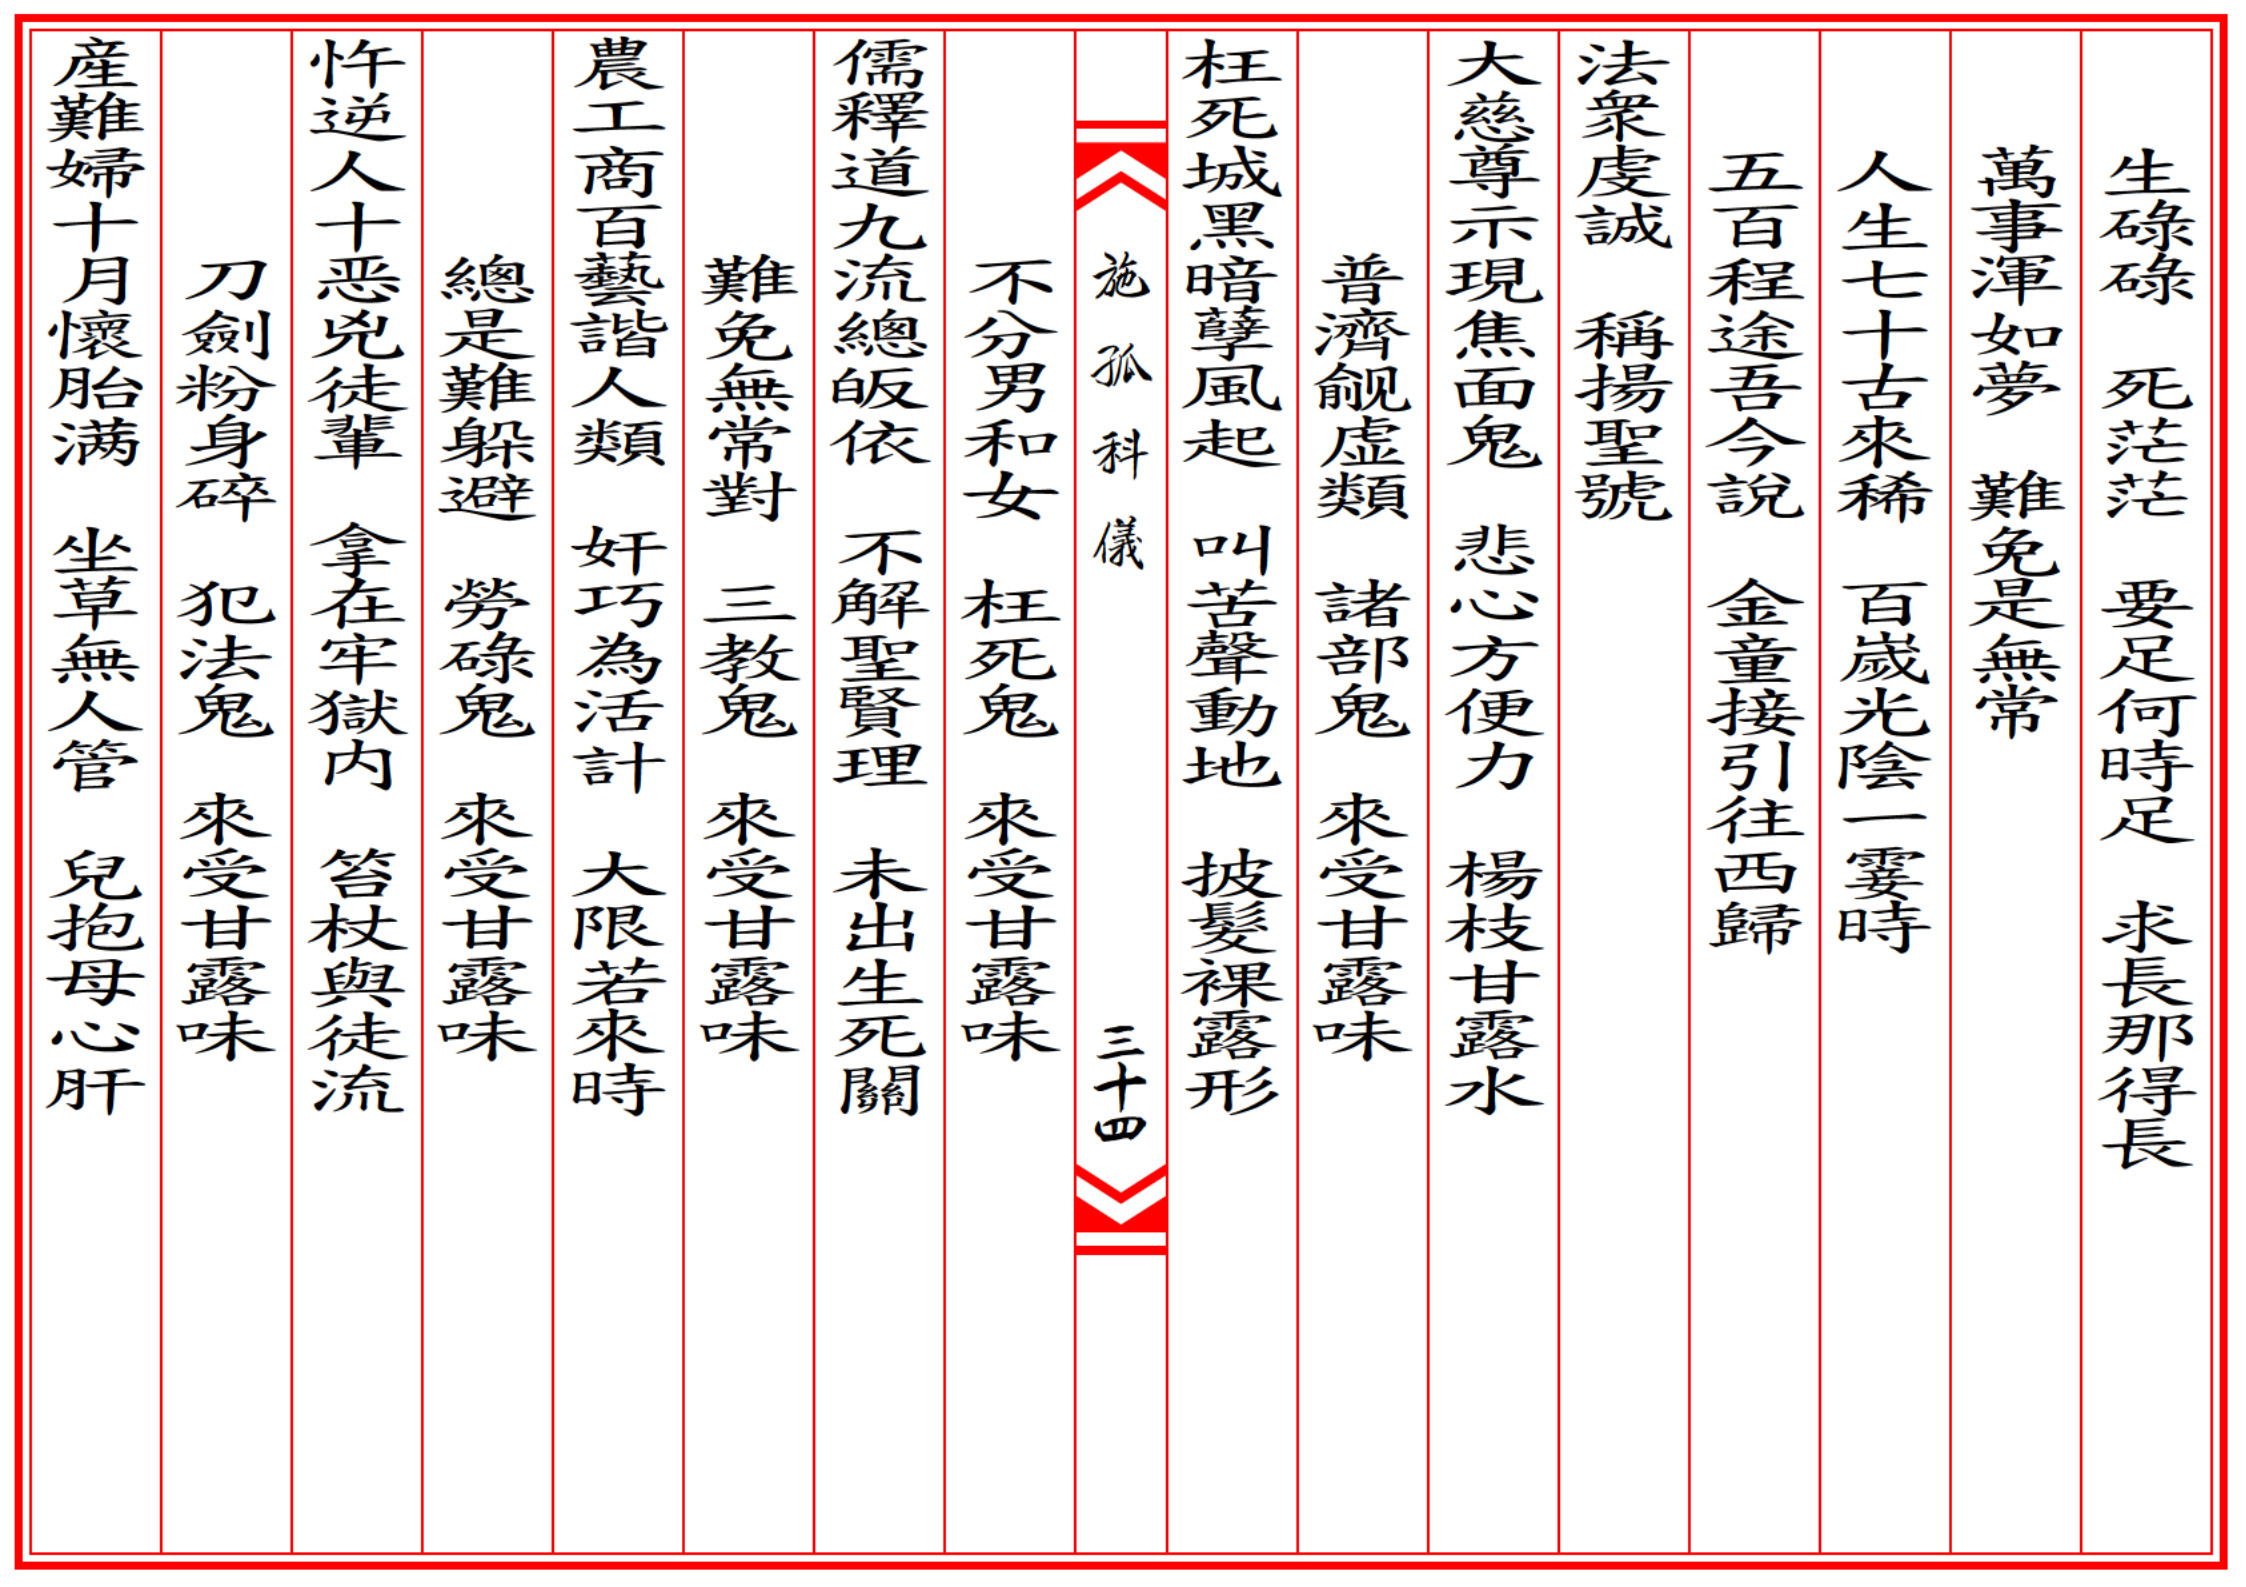 生碌碌　死茫茫　要足何時足　求長那得長
萬事渾如夢　難免是無常
人生七十古來稀　百嵗光陰一霎時
五百程途吾今說　金童接引往西歸
法衆虔誠　稱揚聖號
大慈尊示現焦面鬼　悲心方便力　楊枝甘露水
普濟觎虛類　諸部鬼　來受甘露味
枉死城黑暗孽風起　叫苦聲動地　披髮裸露形
施孤科儀　三十四
不分男和女　枉死鬼　來受甘露味
儒釋道九流總皈依　不解聖賢理　未出生死關
難免無常對　三教鬼　來受甘露味
農工商百藝諧人類　奸巧為活計　大限若來時
總是難躲避　勞碌鬼　來受甘露味
忤逆人十恶兇徒輩　拿在牢獄内　笞杖與徒流
刀劍粉身碎　犯法鬼　來受甘露味
産難婦十月懷胎满　坐草無人管　兒抱母心肝